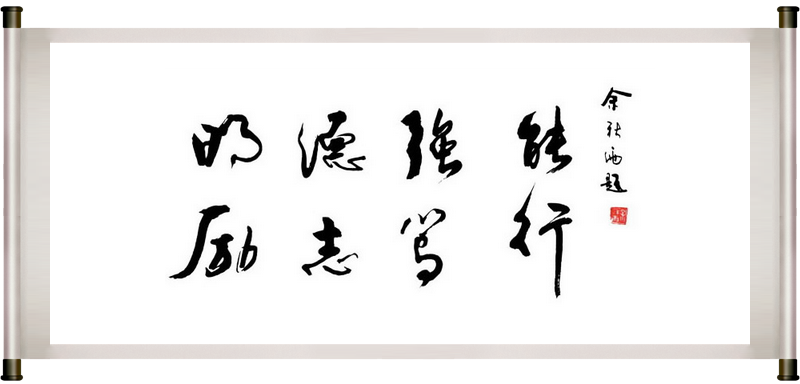 明德强能
励志笃行
余秋雨题